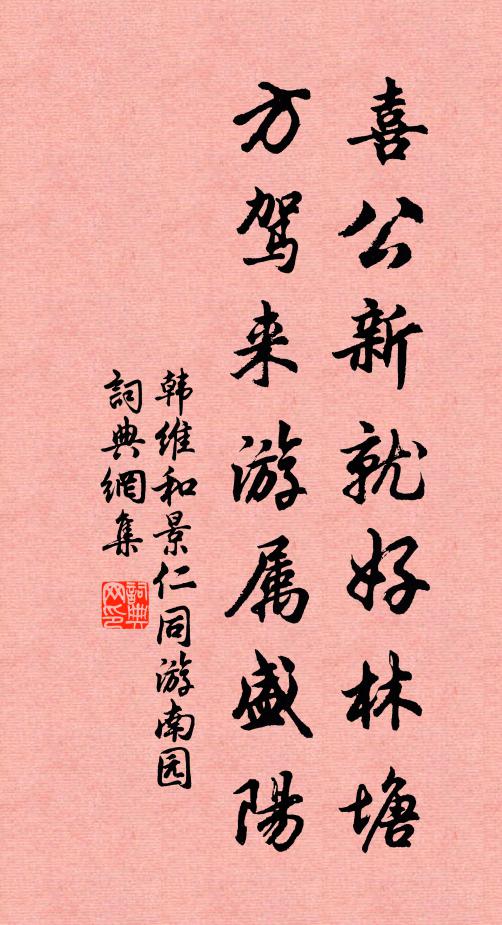 喜公新就好林塘
方驾来游属盛陽
韩维和景仁同游南园
詞典網集
詞典网印